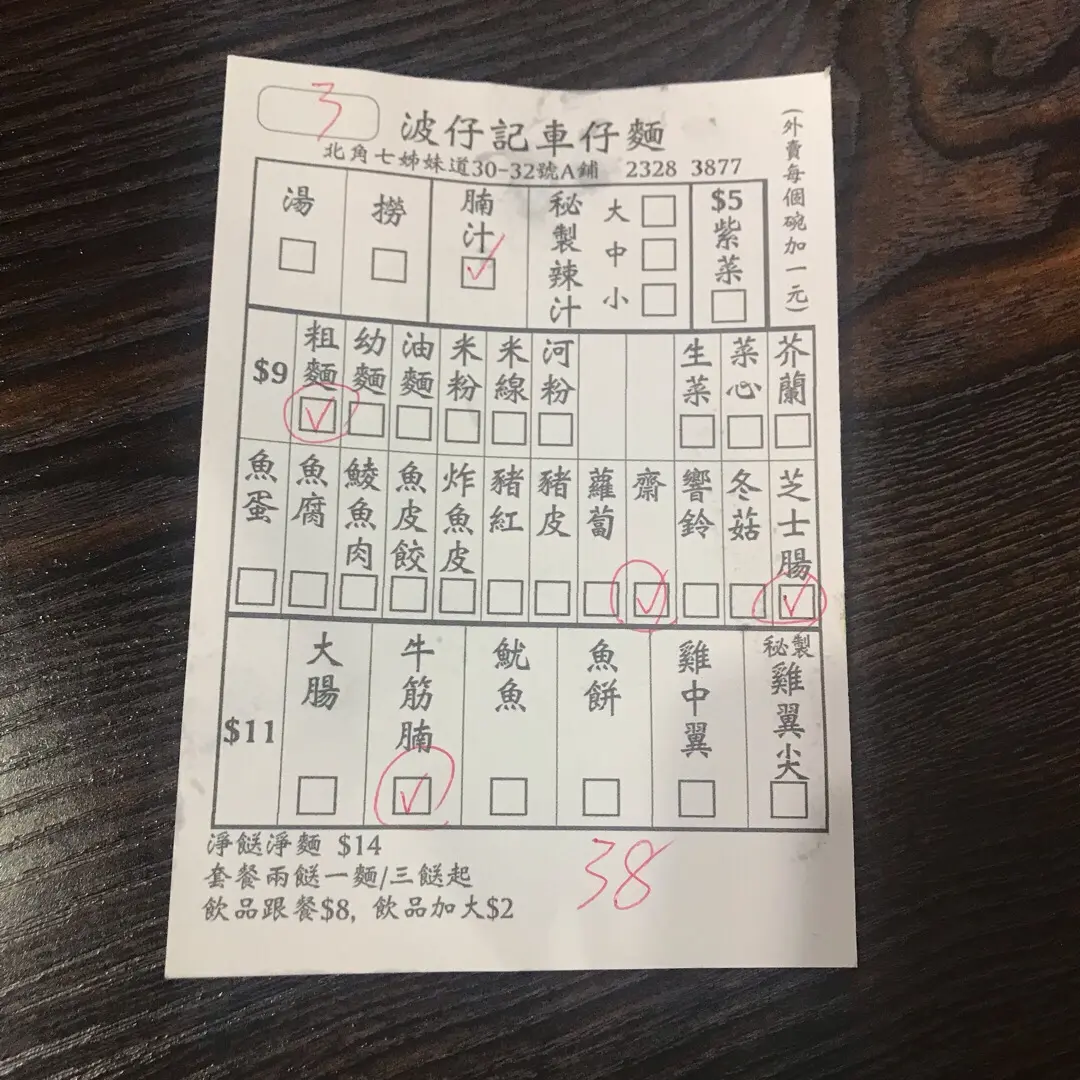 3
波仔記車仔麵
北角七姊妹道30-32號A鋪 2328 3877
(外賣每個碗加一元)
湯
撈
腩汁
秘製辣汁
大
中
小
$5
紫菜
$9
粗麵
幼麵
油麵
米粉
米線
河粉
生菜
菜心
芥蘭
魚蛋
魚腐
鯪魚肉
魚皮餃
炸魚皮
豬紅
豬皮
蘿蔔
齋
響鈴
冬菇
芝士腸
$11
大腸
牛筋腩
魷魚
魚餅
雞中翼
秘製雞翼尖
淨餸淨麵 $14
套餐兩餸一麵/三餸起
飲品跟餐$8, 飲品加大$2
38